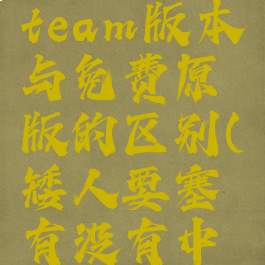 team版本
与免费原
版的区别(
矮人要塞
有没有中